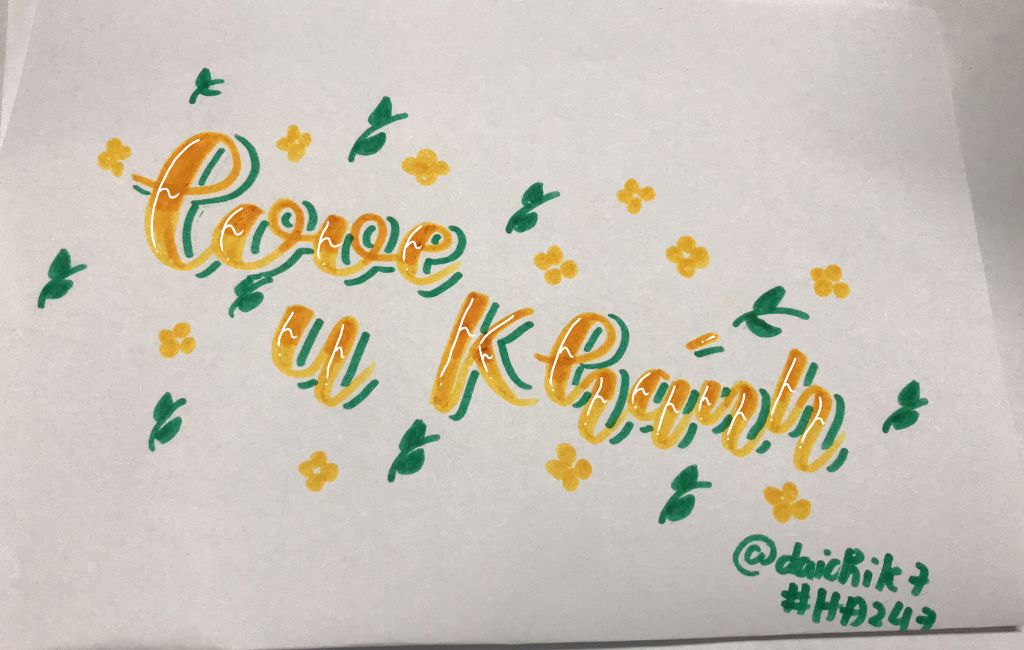 love
u Khánh
@daichik7
#HD247